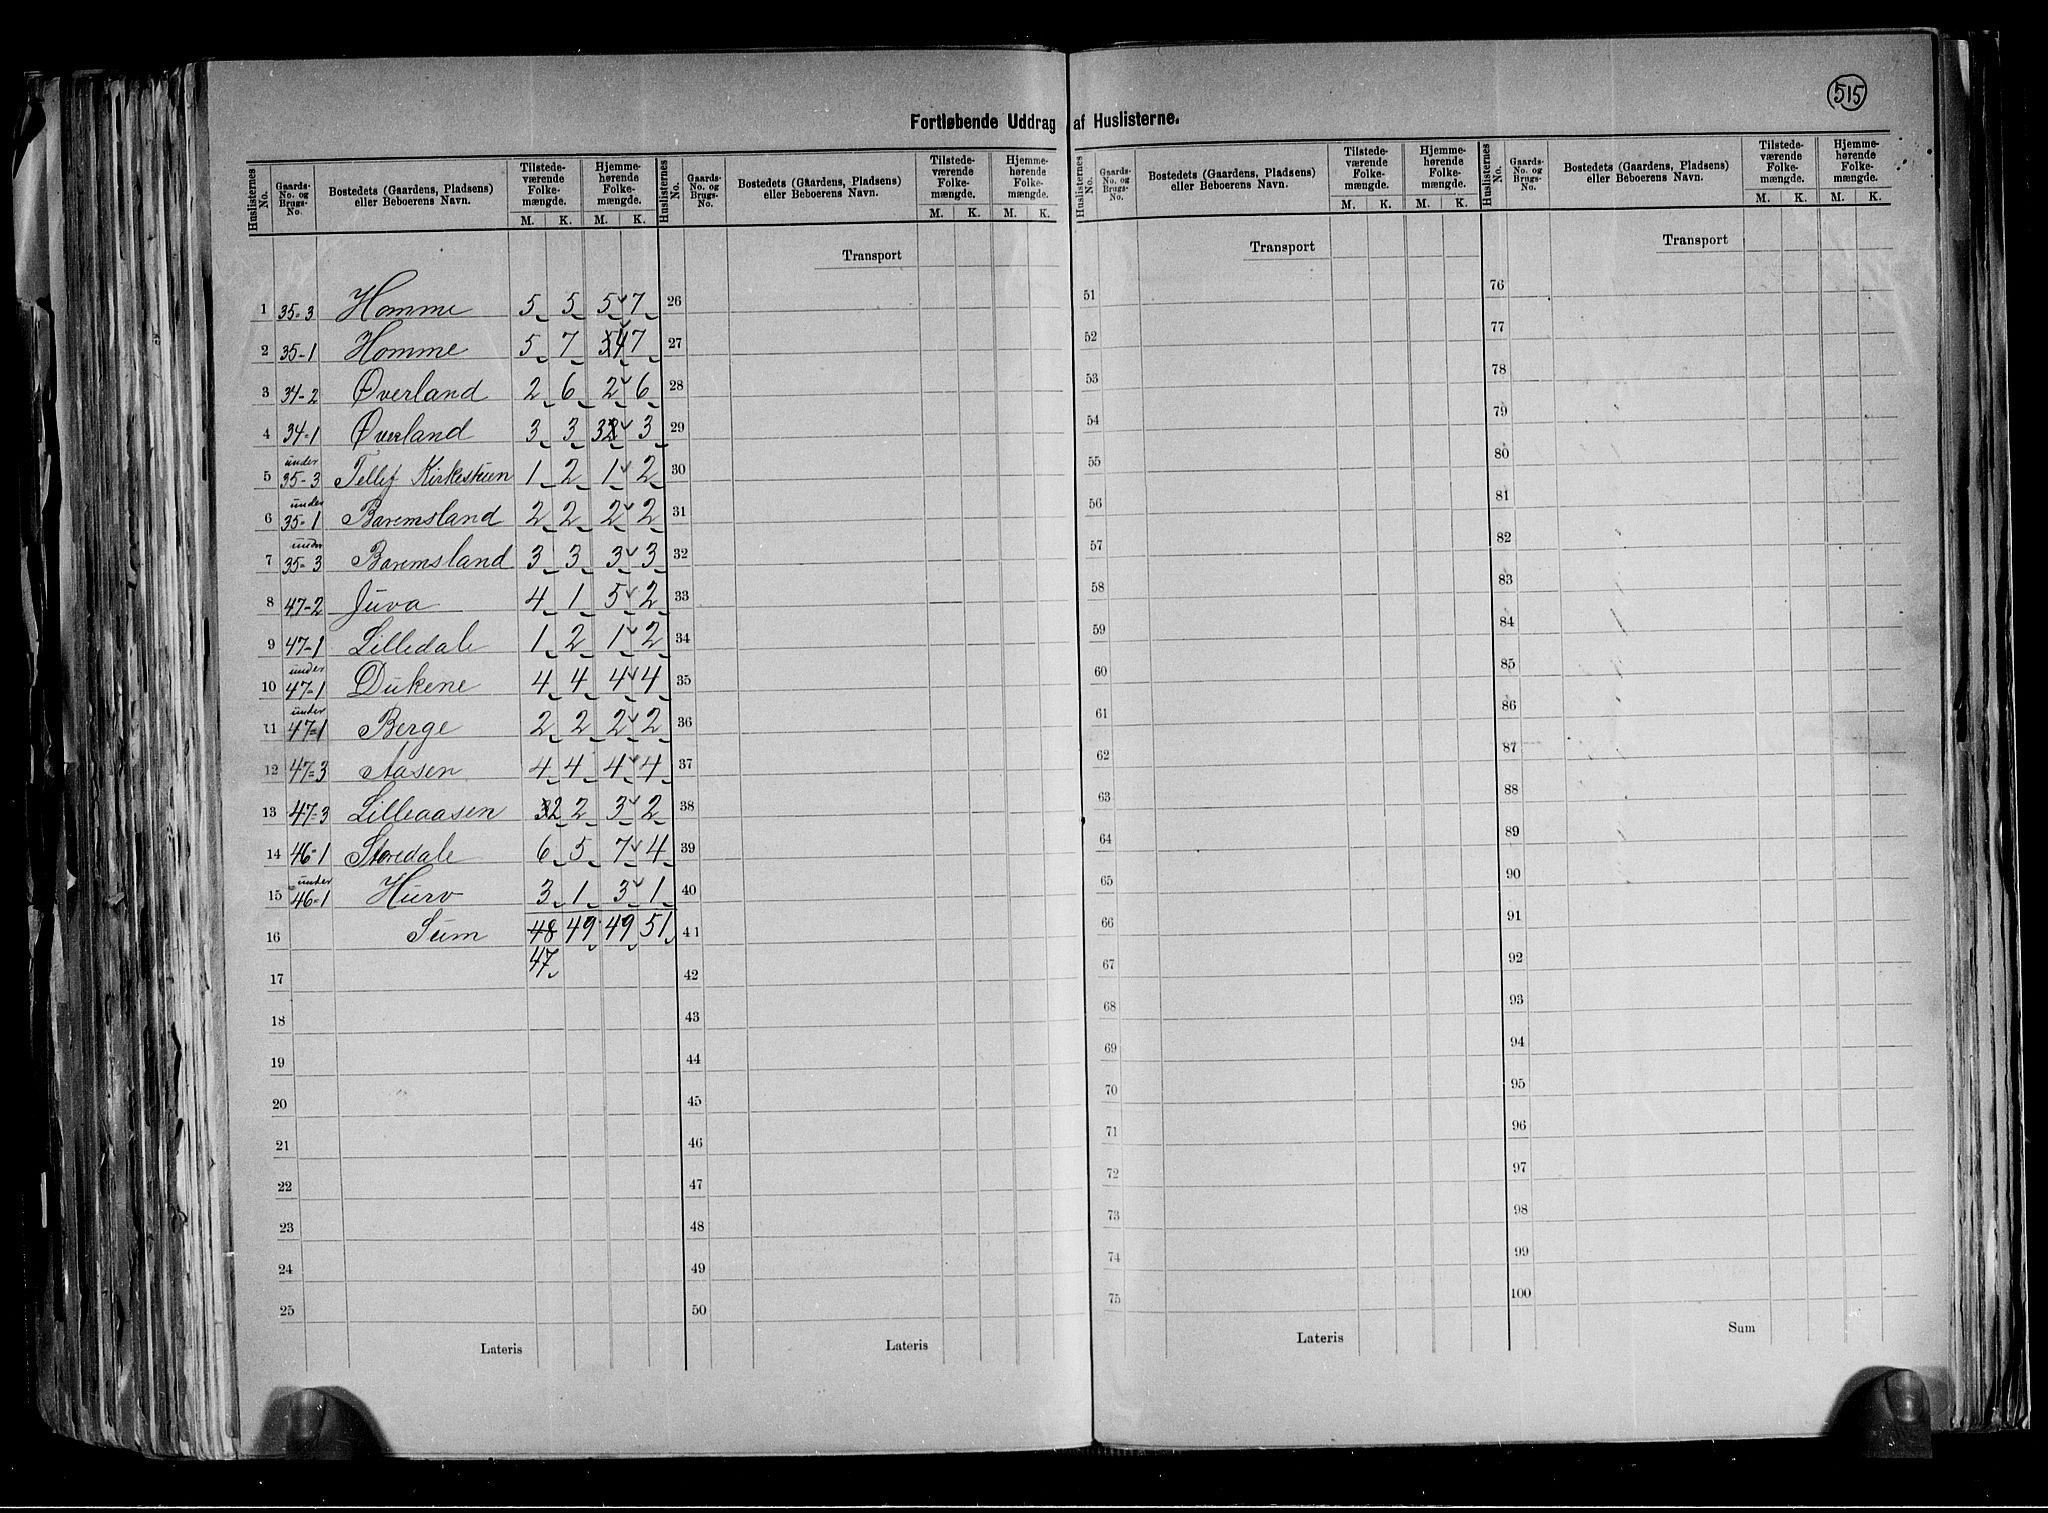 515
Fortløbende Uddrag af Huslisterne.
Huslisternes No. Gaards-No. og Brugs-No. Bostedets (Gaardens, Pladsens) eller Beboerens Navn. Tilstedeværende Folkemængde. M. K. Hjemmehørende Folkemængde. M. K.
Huslisternes No. Gaards-No. og Brugs-No. Bostedets (Gaardens, Pladsens) eller Beboerens Navn. Tilstedeværende Folkemængde. M. K. Hjemmehørende Folkemængde. M. K.
Huslisternes No. Gaards-No. og Brugs-No. Bostedets (Gaardens, Pladsens) eller Beboerens Navn. Tilstedeværende Folkemængde. M. K. Hjemmehørende Folkemængde. M. K.
Huslisternes No. Gaards-No. og Brugs-No. Bostedets (Gaardens, Pladsens) eller Beboerens Navn. Tilstedeværende Folkemængde. M. K. Hjemmehørende Folkemængde. M. K.
1 35-3 Homme 5 5 5 7
2 35-1 Homme 5 7 4 7
3 34-2 Øverland 2 6 2 6
4 34-1 Øverland 3 3 3 3
5 under 35-3 Tellef Kirkestuen 1 2 1 2
6 under 35-1 Baremsland 2 2 2 2
7 under 35-3 Baremsland 3 3 3 3
8 47-2 Juva 4 1 5 2
9 47-1 Lilledale 1 2 1 2
10 under 47-1 Dukene 4 4 4 4
11 under 47-1 Berge 2 2 2 2
12 47-3 Aasen 4 4 4 4
13 47-3 Lilleaasen 3 2 2 3 2
14 46-1 Storedale 6 5 7 4
15 under 46-1 Hurv 3 1 3 1
16 Sum 48 49 49 51
17 47
18
19
20
21
22
23
24
25
Lateris
Transport
26
27
28
29
30
31
32
33
34
35
36
37
38
39
40
41
42
43
44
45
46
47
48
49
50
Lateris
Transport
51
52
53
54
55
56
57
58
59
60
61
62
63
64
65
66
67
68
69
70
71
72
73
74
75
Lateris
Transport
76
77
78
79
80
81
82
83
84
85
86
87
88
89
90
91
92
93
94
95
96
97
98
99
100
Sum